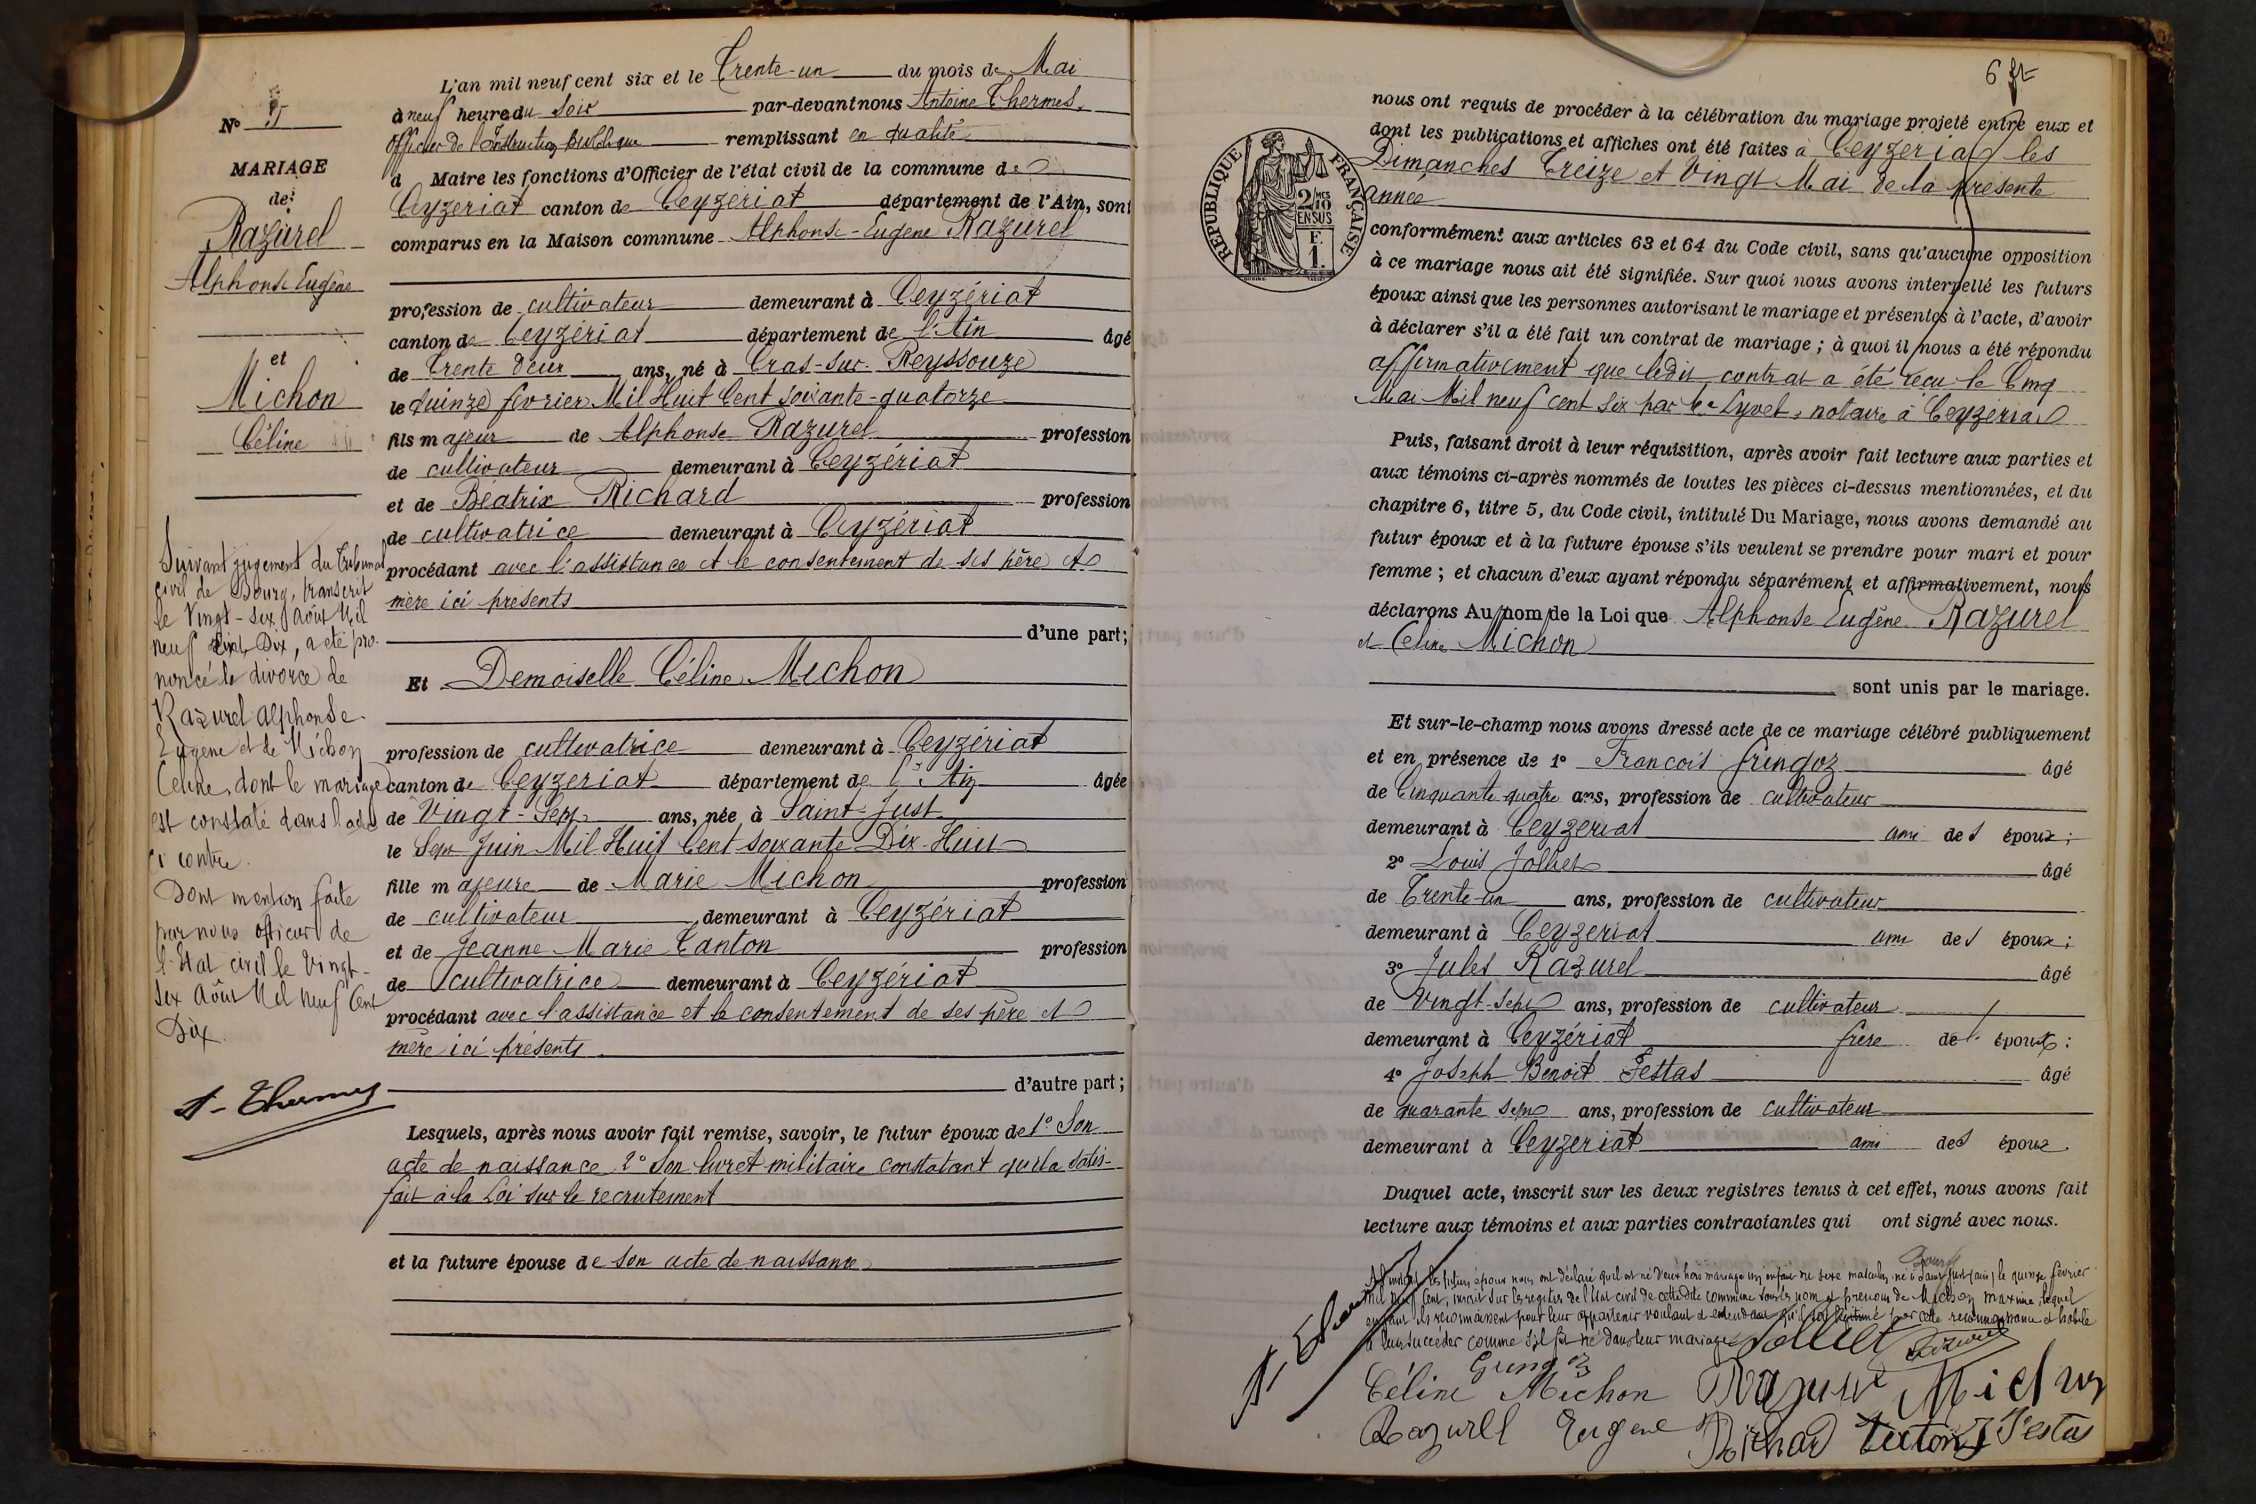 L'an mil neuf cent six et le Trente-un du mois de Mai
à neuf heure du Soir par-devant nous Antoine Thermes,
Officier de l'Instruction Publique remplissant en qualité
d Maire les fonctions d'Officier de l'état civil de la commune de
Ceyzériat canton de Ceyzériat département de l'Ain, sont
comparus en la Maison commune Alphonse-Eugène Razurel
profession de cultivateur demeurant à Ceyzériat
canton de Ceyzériat département de l'Ain âgé
de Trente deux ans, né à Cras-sur-Reyssouze
le quinze février Mil Huit Cent soixante-quatorze
fils majeur de Alphonse Razurel profession
de cultivateur demeurant à Ceyzériat
et de Béatrix Richard profession
de cultivatrice demeurant à Ceyzériat
procédant avec l'assistance et le consentement de ses père et
mère ici présents
d'une part;
Et Demoiselle Céline Michon
profession de cultivatrice demeurant à Ceyzériat
canton de Ceyzeriat département de l'Ain âgée
de Vingt-Sept ans, née à Saint-Just
le Sept Juin Mil Huit Cent soixante Dix-Huit
fille majeure de Marie Michon profession
de cultivateur demeurant à Ceyzériat
et de Jeanne Marie Tanton profession
de cultivatrice demeurant à Ceyzériat
procédant avec l'assistance et le consentement de ses père et
mère ici présents
d'autre part;
Lesquels, après nous avoir fait remise, savoir, le futur époux de 1° Son
acte de naissance 2° Son livret militaire constatant qu'il a satis-
fait à la Loi sur le recrutement
et la future épouse de son acte de naissance
N° 5
MARIAGE
de
Razurel
Alphonse Eugène
et
Michon
Céline
Suivant jugement du Tribunal
civil de Bourg, transcrit
le Vingt-six Août Mil
neuf Cent Dix, a été pro-
noncé le divorce de
Razurel Alphonse
Eugène et de Michon
Céline, dont le mariage
est constaté dans l'acte
ci contre.
Dont mention faite
par nous officier de
l'Etat civil le Vingt-
six Août Mil neuf Cent
Dix.
A. Thermes
6
nous ont requis de procéder à la célébration du mariage projeté entre eux et
dont les publications et affiches ont été faites à Ceyzeriat les
Dimanches Treize et Vingt Mai de la présente
année
REPUBLIQUE FRANÇAISE
2/10 MES
EN SUS
F.
1.
conformément aux articles 63 et 64 du Code civil, sans qu'aucune opposition
à ce mariage nous ait été signifiée. Sur quoi nous avons interpellé les futurs
époux ainsi que les personnes autorisant le mariage et présentes à l'acte, d'avoir
à déclarer s'il a été fait un contrat de mariage; à quoi il nous a été répondu
affirmativement que ledit contrat a été reçu le Cinq
Mai Mil neuf cent six par Me Lyvet, notaire à Ceyzériat
Puis, faisant droit à leur réquisition, après avoir fait lecture aux parties et
aux témoins ci-après nommés de toutes les pièces ci-dessus mentionnées, et du
chapitre 6, titre 5, du Code civil, intitulé Du Mariage, nous avons demandé au
futur époux et à la future épouse s'ils veulent se prendre pour mari et pour
femme; et chacun d'eux ayant répondu séparément et affirmativement, nous
déclarons Au nom de la Loi que Alphonse Eugène Razurel
et Céline Michon
sont unis par le mariage.
Et sur-le-champ nous avons dressé acte de ce mariage célébré publiquement
et en présence de 1° François Gringoz âgé
de Cinquante quatre ans, profession de cultivateur
demeurant à Ceyzeriat ami des époux;
2° Louis Jolliet âgé
de Trente-un ans, profession de cultivateur
demeurant à Ceyzeriat ami des époux;
3° Jules Razurel âgé
de Vingt-sept ans, profession de cultivateur
demeurant à Ceyzériat frère de l' époux:
4° Joseph Benoit Festas âgé
de quarante sept ans, profession de cultivateur
demeurant à Ceyzeriat ami des époux
Duquel acte, inscrit sur les deux registres tenus à cet effet, nous avons fait
lecture aux témoins et aux parties contractantes qui ont signé avec nous.
les futurs époux nous ont déclaré qu'il est né d'eux hors mariage un enfant du sexe masculin né à Saint Just (Ain) le quinze février
mil neuf Cent, inscrit sur les registres de l'Etat civil de cette dite commune sous les nom et prénom de Michon Maxime, lequel
enfant ils reconnaissent pour leur appartenir voulant et entendant qu'il soit légitimé par cette reconnaissance et habile
à leur succéder comme s'il fut né dans leur mariage
Jolliet Razurel
A. Thermes
Gringoz
Céline Michon Razurel Michon
Razurel Eugène Richard Tanton J Festas